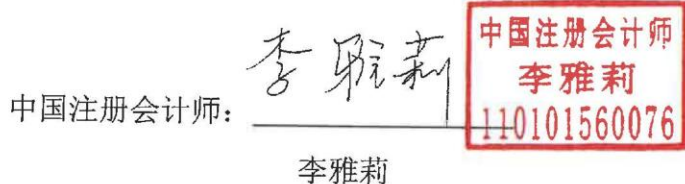 中国注册会计师：李雅莉
中国注册会计师
李雅莉
110101560076
李雅莉